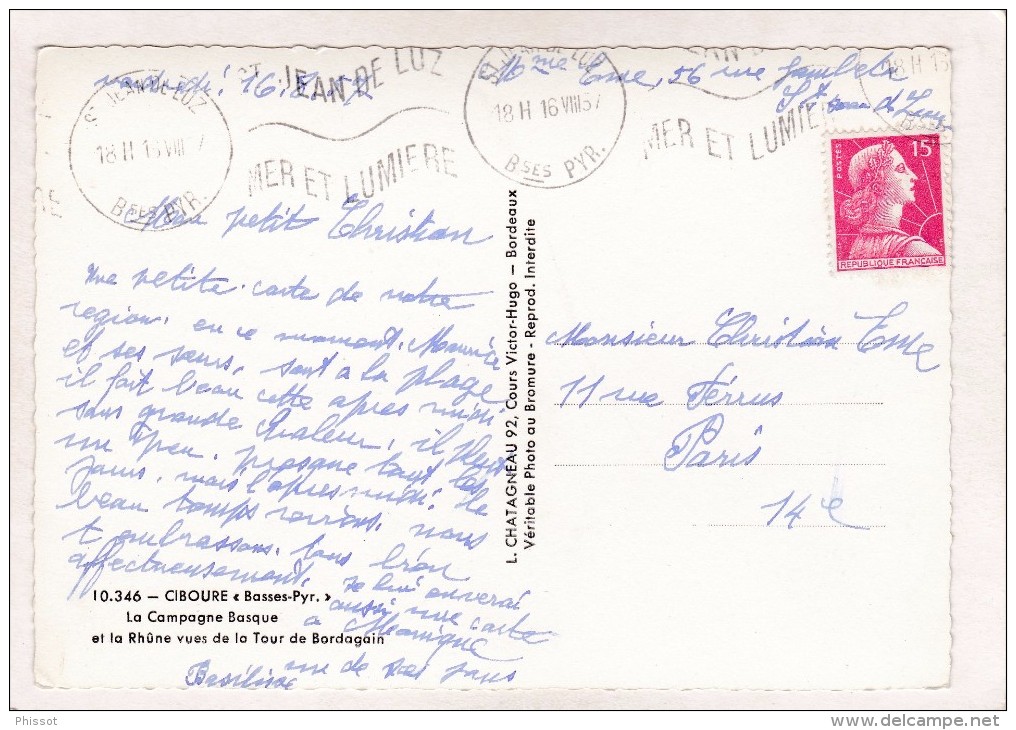 vendredi 16.8.57
Mme Eme, 56 rue Gambetta
St Jean de Luz
ST JEAN DE LUZ
18 H 16 VIII 57
BSES PYR.
ST JEAN DE LUZ
MER ET LUMIERE
ST JEAN DE LUZ
18 H 16 VIII 57
BSES PYR.
MER ET LUMIERE
18 H 16
POSTES
15F
REPUBLIQUE FRANCAISE
Mon petit Christian
Une petite carte de notre
region. en ce moment. Maurice
et ses sœurs, sont a la plage
il fait beau cette apres midi
sans grande chaleur, il pleut
un peu. presque tout les
jours. mais l'apres midi. le
beau temps revient. nous
t embrassons. tous bien
affectueusement.
je lui enverai
aussi une carte
a Monique
un de ces jours
Basilise
L. CHATAGNEAU 92, Cours Victor-Hugo — Bordeaux
Véritable Photo au Bromure - Reprod. Interdite
Monsieur Christian Eme
11 rue Ferrus
Paris
14e
10.346 — CIBOURE « Basses-Pyr. »
La Campagne Basque
et la Rhûne vues de la Tour de Bordagain
Phissot
delcampe.net